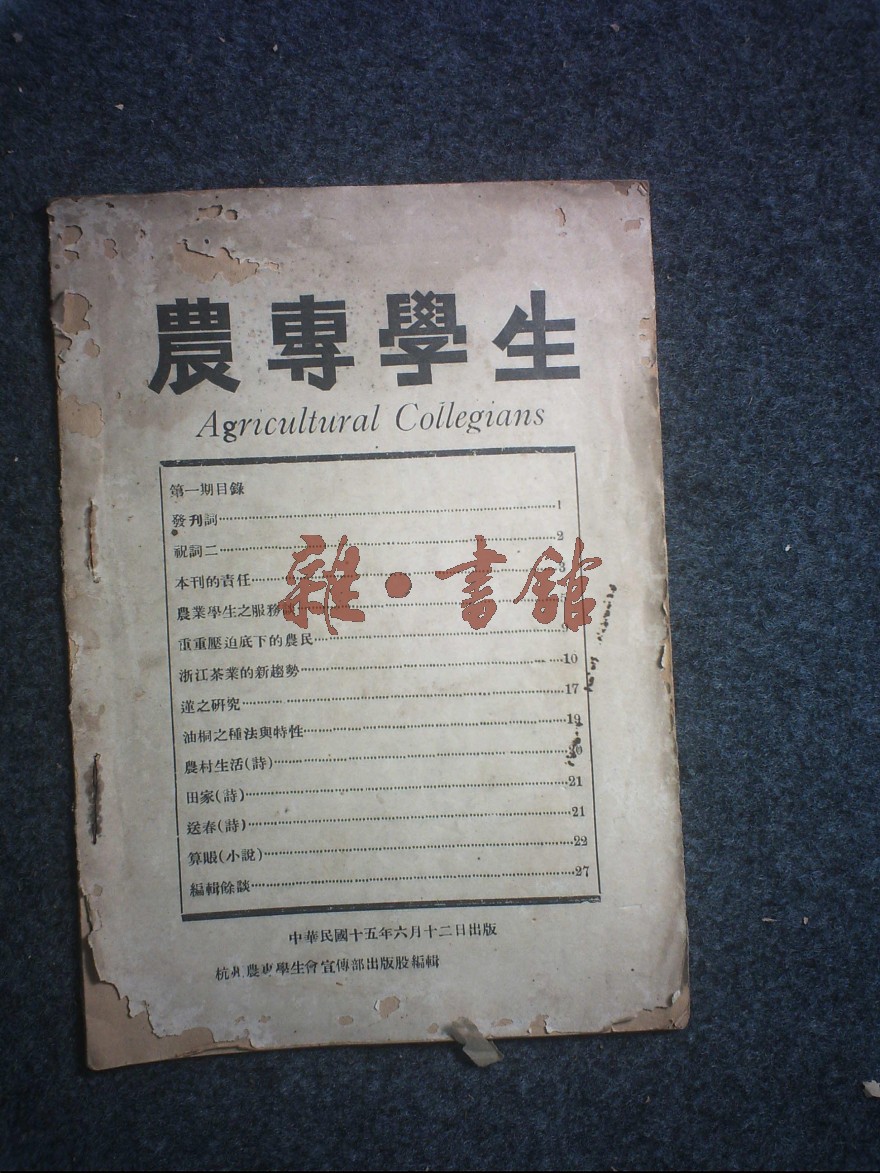 農專學生
Agricultural Collegians
第一期目錄
發刊詞 1
祝詞二 2
本刊的責任 3
農業學生之服務談 5
重重壓迫底下的農民 9
浙江茶業的新趨勢 10
蓮之研究 17
油桐之種法與特性 19
農村生活(詩) 20
田家(詩) 21
送春(詩) 21
算賬(小說) 22
編輯餘談 27
中華民國十五年六月十二日出版
杭州農專學生會宣傳部出版股編輯
雜·書館